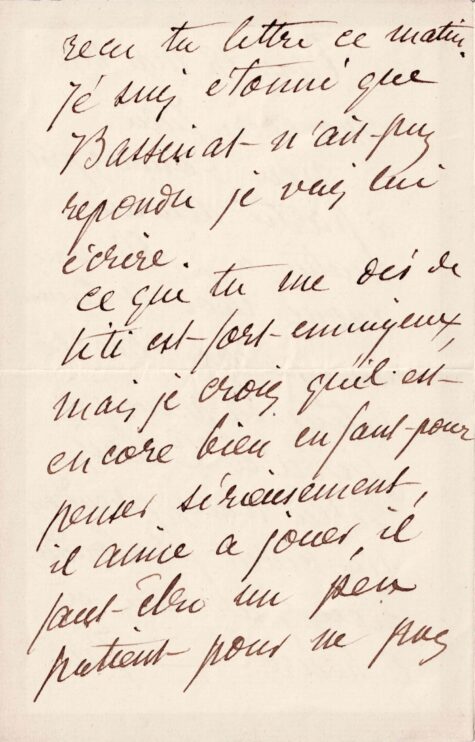 recu ta lettre ce matin.
Je suis étonné que
Bassinat n'ait pas
repondu je vais lui
écrire.
ce que tu me dis de
titi est fort ennuyeux,
mais je crois qu'il est
encore bien enfant pour
penser sérieusement,
il aime a jouer, il
faut être un peu
patient pour ne pas